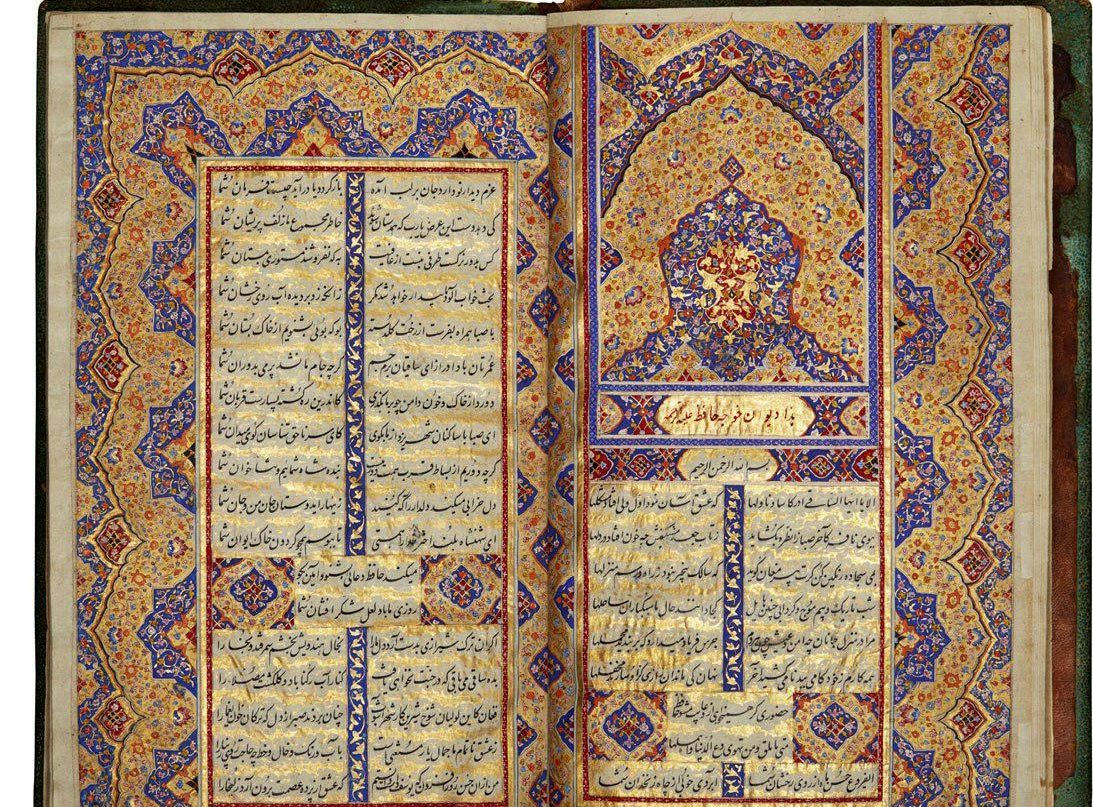 هذا دیوان خواجه حافظ علیه الرحمه
بسم الله الرحمن الرحیم
الا یا ایها الساقی ادر کاسا و ناولها که عشق آسان نمود اول ولی افتاد مشکلها
ببوی نافه کاخر صبا زان طره بگشاید ز تاب جعد مشکینش چه خون افتاد در دلها
بمی سجاده رنگین کن گرت پیر مغان گوید که سالک بیخبر نبود ز راه و رسم منزلها
شب تاریک و بیم موج و گردابی چنین هایل کجا دانند حال ما سبکباران ساحلها
مرا در منزل جانان چه امن و عیش چون هر دم جرس فریاد میدارد که بربندید محملها
همه کارم ز خود کامی ببدنامی کشید آخر نهان کی ماند آن رازی کزو سازند محفلها
حضوری گر همیخواهی ازو غایب مشو حافظ
متی ما تلق من تهوی دع الدنیا و اهملها
ای فروغ ماه حسن از روی رخشان شما آبروی خوبی از چاه زنخدان شما
عزم دیدار تو دارد جان بر لب آمده بازگردد یا درآید چیست فرمان شما
کی دهد دست این غرض یارب که همدستان شوند خاطر مجموع ما زلف پریشان شما
کس بدور نرگست طرفی نبست از عافیت به که نفروشند مستوری بمستان شما
بخت خواب آلود ما بیدار خواهد شد مگر زانکه زد بر دیده آب روی رخشان شما
با صبا همراه بفرست از رخت گلدسته بو که بوئی بشنویم از خاک بستان شما
عمرتان بادا دراز ای ساقیان بزم جم گرچه جام ما نشد پر می بدوران شما
دور دار از خاک و خون دامن چو بر ما بگذری کاندرین ره کشته بسیارست قربان شما
ای صبا با ساکنان شهر یزد از ما بگوی کای سر ناحق شناسان گوی میدان شما
گرچه دوریم از بساط قرب همت دور نیست بنده شاه شماییم و ثناخوان شما
دل خرابی میکند دلدار را آگه کنید زینهار ای دوستان جان من و جان شما
ای شهنشاه بلند اختر خدا را همتی تا ببوسم همچو گردون خاک ایوان شما
میکند حافظ دعائی بشنو و آمین بگو
روزی ما باد لعل شکر افشان شما
اگر آن ترک شیرازی بدست آرد دل ما را بخال هندویش بخشم سمرقند و بخارا را
بده ساقی می باقی که در جنت نخواهی یافت کنار آب رکناباد و گلگشت مصلا را
فغان کاین لولیان شوخ شیرین کار شهر آشوب چنان بردند صبر از دل که ترکان خوان یغما را
ز عشق ناتمام ما جمال یار مستغنیست بآب و رنگ و خال و خط چه حاجت روی زیبا را
من از آن حسن روزافزون که یوسف داشت دانستم که عشق از پرده عصمت برون آرد زلیخا را